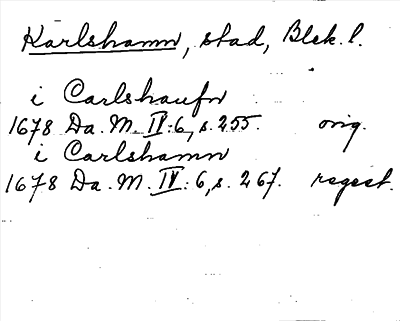 Karlshamn, stad, Blek. l.
i Carlshaufn
1678 Da. M. IV:6, s. 255. orig.
i Carlshamn
1678 Da. M. IV:6, s. 267. regest.